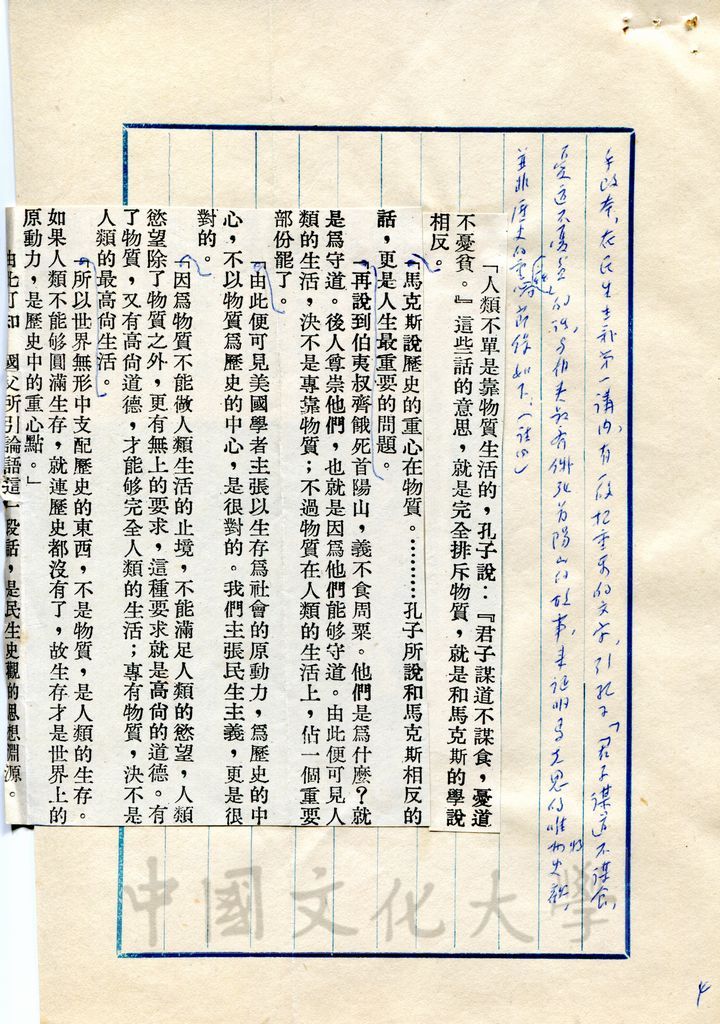 手改本,在民生主義第一講內,有一段極重要的文字,引孔子「君子謀道不謀食,
憂道不憂貧」的話,與伯夷叔齊餓死首陽山的故事,來證明馬克思的唯物史觀,
並非歷史的重心,節錄如下:(註四)
「人類不單是靠物質生活的,孔子說:『君子謀道不謀食,憂道
不憂貧。』這些話的意思,就是完全排斥物質,就是和馬克斯的學說
相反。
「馬克斯說歷史的重心在物質。………孔子所說和馬克斯相反的
話,更是人生最重要的問題。
「再說到伯夷叔齊餓死首陽山,義不食周粟。他們是爲什麼?就
是爲守道。後人尊崇他們,也就是因爲他們能够守道。由此便可見人
類的生活,決不是專靠物質;不過物質在人類的生活上,佔一個重要
部份罷了。
「由此便可見美國學者主張以生存爲社會的原動力,爲歷史的中
心,不以物質爲歷史的中心,是很對的。我們主張民生主義,更是很
對的。
「因爲物質不能做人類生活的止境,不能滿足人類的慾望,人類
慾望除了物質之外,更有無上的要求,這種要求就是高尙的道德。有
了物質,又有高尙道德,才能够完全人類的生活;專有物質,決不是
人類的最高尙生活。
「所以世界無形中支配歷史的東西,不是物質,是人類的生存。
如果人類不能够圓滿生存,就連歷史都沒有了,故生存才是世界上的
原動力,是歷史中的重心點。」
由此可知 國父所引論語這一段話,是民生史觀的思想淵源。
4
中國文化大學